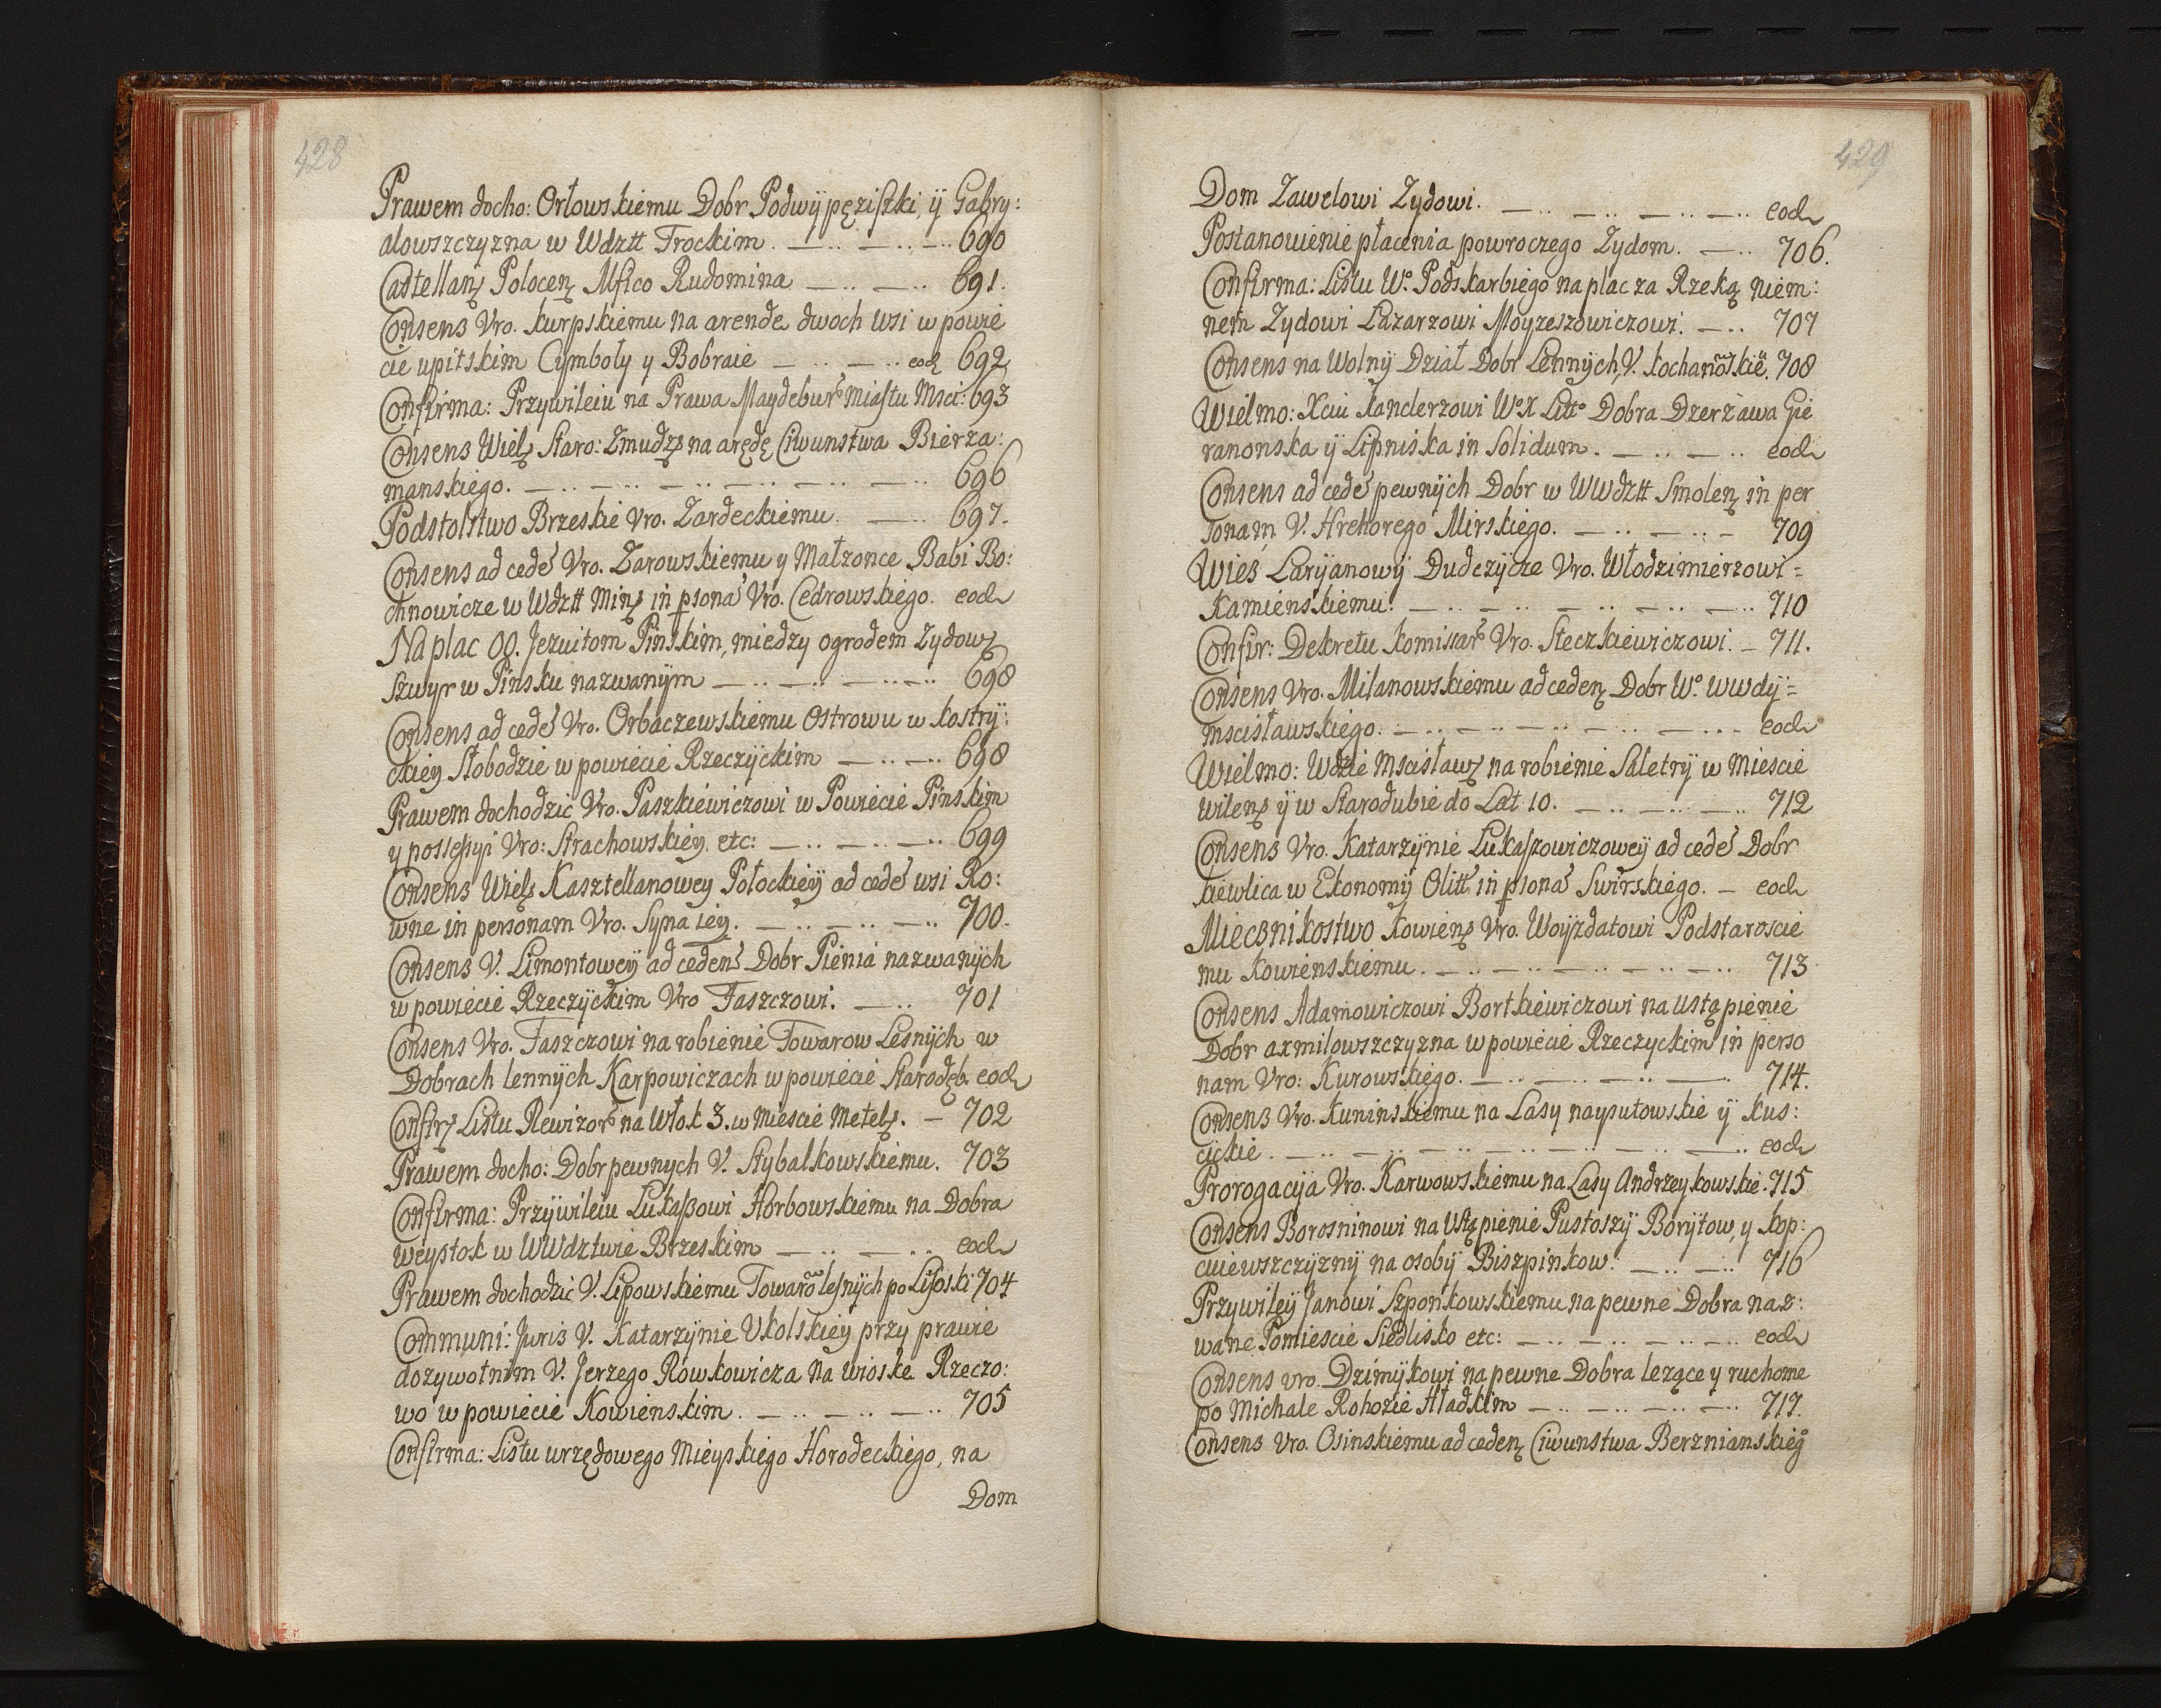 428
Prawem docho: Orłowskiemu Dobr Podwÿpęziszki, ÿ Gabry:
alowszczyzna w Wdztt Trockim. — .. — .. — .. 690
Castellanȝ Polocenȝ Mfico Rudomina — .. — .. 691.
Consens Vro. Kurpskiemu na arende dwoch wsi w powie
cie upitskim Cymboły y Bobraie — .. — .. eod 692
Confirma: Przywileiu na Prawa Maydebur miastu Msci: 693
Consens Wielȝ Staro: Zmudzȝ na arędę Ciwunstwa Bierza:
manskiego. — .. — .. — .. — .. — .. — .. 696
Podstolstwo Brzeskie Vro. Zardeckiemu. — .. 697.
Consens ad cede Vro. Zarowskiemu y Małzonce Babi Bo:
chnowicze w Wdztt Minȝ in psona Vro. Cedrowskiego. eod
Na plac OO. Jezuitom Pinskim, miedzy ogrodem Zydowȝ
Szwyr w Pinsku nazwanÿm — .. — .. — .. — .. 698
Consens ad cede Vro. Orbaczewskiemu Ostrowu w Kostrÿ:
ckieÿ Słobodzie w powiecie Rzeczÿckim — .. — .. 698
Prawem dochodzic Vro. Paszkiewiczowi w Powiecie Pinskim
y possessyi Vro: Strachowskieÿ. etc: — .. — .. — .. 699
Consens Wielȝ Kasztellanowey Połockieÿ ad cede wsi Ro:
wne in personam Vro. Syna ieÿ. — .. — .. — .. 700.
Consens V. Limontoweÿ ad ceden Dobr Pienia nazwanÿch
w powiecie Rzeczÿckim Vro Faszczowi. — .. 701
Consens Vro. Faszczowi na robienie Towarow Lesnÿch w
Dobrach lennÿch Karpowiczach w powiecie Starodęb. eod
Confirȝ Listu Rewizor na Włok 3. w Miescie Metelȝ. — 702
Prawem docho: Dobr pewnych V. Stybalkowskiemu. 703
Confirma: Przÿwileiu Lukaszowi Horbowskiemu na Dobra
weystok w WWdztwie Brzeskim — .. — .. eod
Prawem dochodzic V. Lipowskiemu Towaro lesnÿch po Lisoski 704
Communi: Juris V. Katarzÿnie Ukolskieÿ przy prawie
dozywotnim V. Jerzego Rowkowicza na wioske Rzeczo:
wo w powiecie Kowienskim. — .. — .. — .. 705
Confirma: Listu urzędowego Mieyskiego Horodeckiego, na
Dom
429
Dom Zawelowi Zydowi. — .. — .. — .. — .. eod
Postanowienie płacenia powroczego Zydom. — .. 706.
Confirma: Listu Wo. Podskarbiego na plac za Rzeką niem:
nem Zydowi Lazarzowi Moyzeszowiczowi. — .. 707
Consens na Wolnÿ Dział Dobr Lennÿch, V. Kochanoskie. 708
Wielmo: Xciu Kanclerzowi WoX Litto Dobra Dzerzawa Gie
ranonska ÿ Lipniska in Solidum. — .. — .. eod
Consens ad cede pewnÿch Dobr w WWdztt Smolenȝ in per
sonam V. Hrehorego Mirskiego. — .. — .. — 709
Wies Laryanowÿ Dudczÿcze Vro. Włodzimierzowi =
Kamienskiemu. — .. — .. — .. — .. — .. 710
Confir: Dekretu Komissar Vro. Steczkiewiczowi. — 711.
Consens Vro. Milanowskiemu ad cedenȝ Dobr Wo. WWdÿ =
mscisławskiego. — .. — .. — .. — .. — ... eod
Wielmo: Wdzie Mscisławȝ na robienie Saletrÿ w Miescie
Wilenȝ ÿ w Starodubie do Lat 10. — .. — .. — .. 712
Consens Vro. Katarzÿnie Lukaszowiczoweÿ ad cede Dobr
kiewlica w Ekonomÿ Olitt in psona Swirskiego. — eod
Miecznikostwo Kowienȝ Vro. Woyzdatowi Podstaroscie
mu Kowienskiemu. — .. — .. — .. — .. — .. 713
Consens Adamowiczowi Bortkiewiczowi na ustąpienie
Dobr axmilowszczyzna w powiecie Rzeczyckim in perso
nam Vro: Kurowskiego. — .. — .. — .. — 714.
Consens Vro. Kuninskiemu na Lasy naysutowskie ÿ kus:
cickie. — .. — .. — .. — .. — .. — .. eod
Prorogacÿa Vro. Karwowskiemu na Lasy Andrzeykowskie. 715
Consens Borosninowi na Ustąpienie Pustoszÿ Borÿtow, y kop:
ciewszczÿznÿ na osobÿ Biszpinkow. — .. — .. 716
Przywileÿ Janowi Szponkowskiemu na pewne Dobra naz:
wane Pomiescie Siedlisko etc: — .. — .. — .. — .. eod
Consens vro. Dzimÿkowi na pewne Dobra lezące y ruchome
po Michale Rohozie Hładkim — .. — .. — .. — .. 717.
Consens Vro. Osinskiemu ad cedenȝ Ciwunstwa Berznianskiego